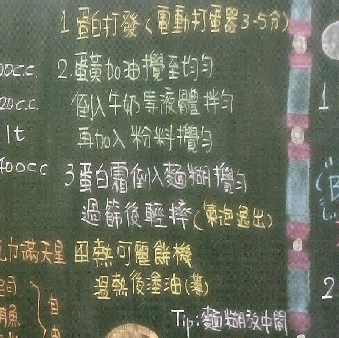 1 蛋白打發(電動打蛋器3-5分)
00c.c. 2.蛋黃加油攪至均勻
20c.c. 倒入牛奶等液體拌勻
1t 再加入粉料攪勻
400cc 3蛋白霜倒入麵糊攪勻
過篩後輕摔(氣泡逸出)
滿天星 四熱可麗餅機
溫熱後塗油(薄)
Tip:麵糊放中間
1
2